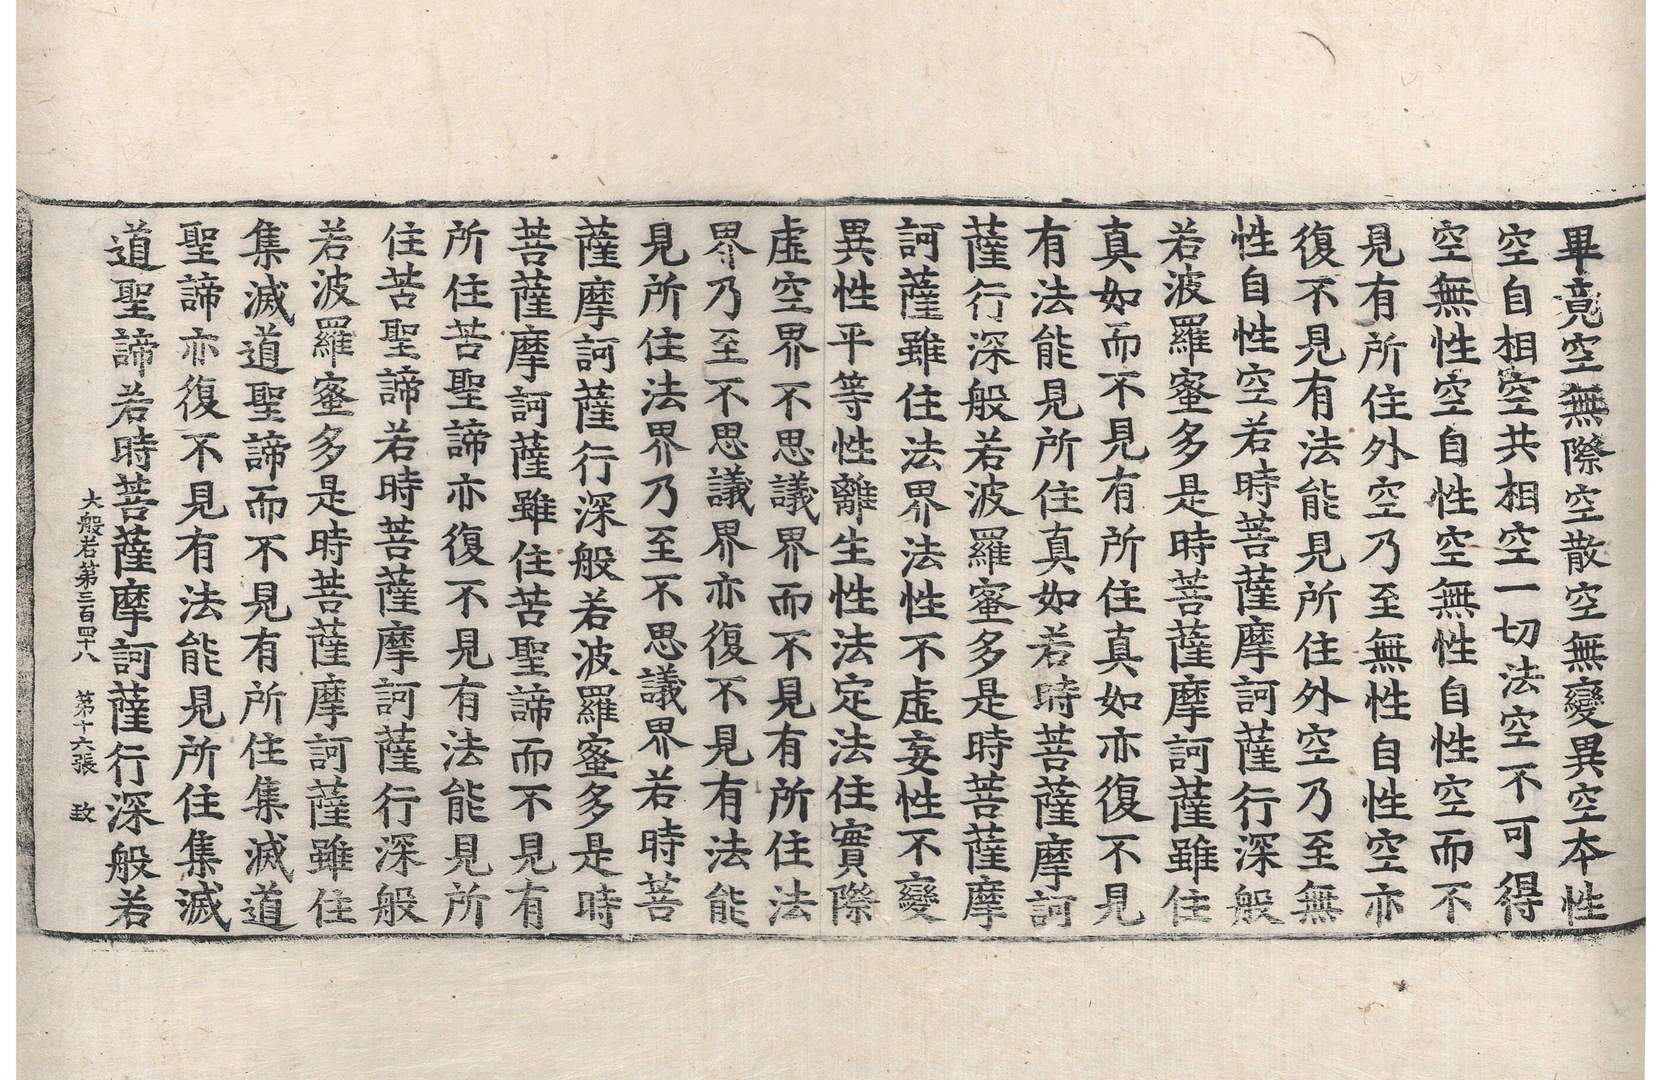 畢竟空無際空散空無變異空本性
空自相空共相空一切法空不可得
空無性空自性空無性自性空而不
見有所住外空乃至無性自性空亦
復不見有法能見所住外空乃至無
性自性空若時菩薩摩訶薩行深般
若波羅蜜多是時菩薩摩訶薩雖住
真如而不見有所住真如亦復不見
有法能見所住真如若時菩薩摩訶
薩行深般若波羅蜜多是時菩薩摩
訶薩雖住法界法性不虛妄性不變
異性平等性離生性法定法住實際
虛空界不思議界而不見有所住法
界乃至不思議界亦復不見有法能
見所住法界乃至不思議界若時菩
薩摩訶薩行深般若波羅蜜多是時
菩薩摩訶薩雖住苦聖諦而不見有
所住苦聖諦亦復不見有法能見所
住苦聖諦若時菩薩摩訶薩行深般
若波羅蜜多是時菩薩摩訶薩雖住
集滅道聖諦而不見有所住集滅道
聖諦亦復不見有法能見所住集滅
道聖諦若時菩薩摩訶薩行深般若
大般若第三百四十八 第十六張 致